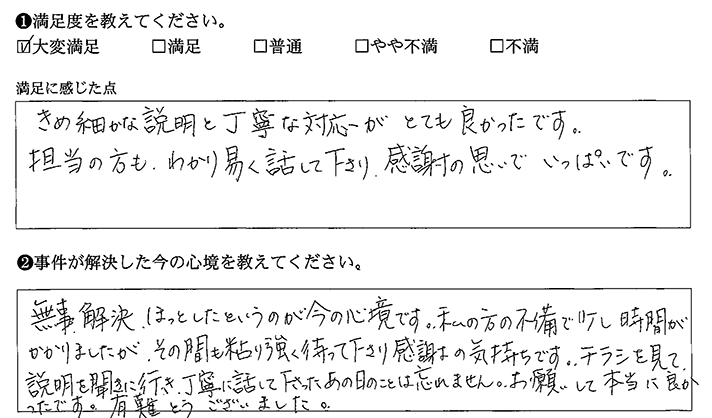 ❶満足度を教えてください。
☑大変満足 □満足 □普通 □やや不満 □不満
満足に感じた点
きめ細かな説明と丁寧な対応がとても良かったです。
担当の方も、わかり易く話して下さり、感謝の思いでいっぱいです。
❷事件が解決した今の心境を教えてください。
無事、解決、ほっとしたというのが今の心境です。私の方の不備で少し時間が
かかりましたが、その間も粘り強く待って下さり感謝の気持ちです。チラシを見て、
説明を聞きに行き、丁寧に話して下さったあの日のことは忘れません。お願いして本当に良か
ったです。有難とうございました。